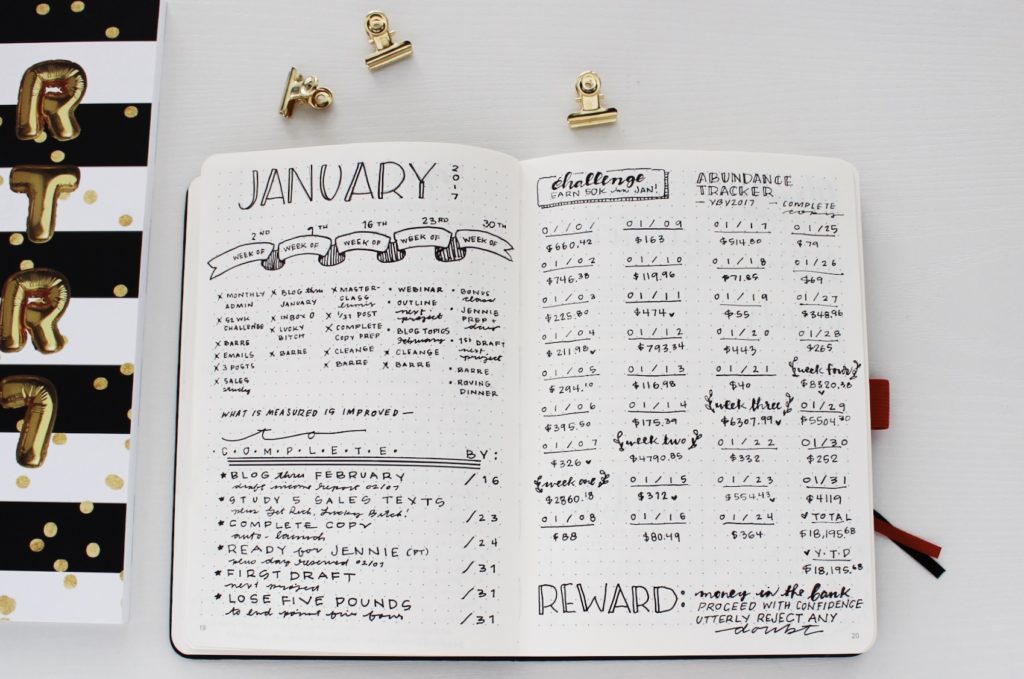 R
T
R
JANUARY
2017
2ND
9TH
16TH
23RD
30TH
WEEK OF
WEEK OF
WEEK OF
WEEK OF
WEEK OF
x MONTHLY
ADMIN
x 52 WK
CHALLENGE
x BARRE
x EMAILS
x 3 POSTS
x SALES
study
x BLOG thru
JANUARY
x INBOX 0
x LUCKY
BITCH
x BARRE
x MASTER-
CLASS
x 1/31 POST
x COMPLETE
COPY PREP
x CLEANSE
x BARRE
• WEBINAR
• OUTLINE
next
project
• BLOG TOPICS
February
x CLEANGE
x BARRE
• BONUS
class
• JENNIE
PREP +
days
• 1ST DRAFT
next
project
• BARRE
• ROVING
DINNER
WHAT IS MEASURED IS IMPROVED—
to
COMPLETE
BY:
* BLOG thru FEBRUARY
/16
draft income report 02/07
* STUDY 5 SALES TEXTS
plus Get Rich, Lucky Bitch!
/23
* COMPLETE COPY
auto-launch
/24
* READY for JENNIE (PT)
new day reserved 02/07
/31
* FIRST DRAFT
next project
/31
* LOSE FIVE POUNDS
/31
19
challenge
EARN 50K in JAN!
ABUNDANCE
TRACKER
— YBY2017
— COMPLETE
copy
01/01
$660.42
01/02
$746.38
01/03
$225.80
01/04
$211.98 ♥
01/05
$294.10
01/06
$395.50
01/07
$326 ♥
week one
$2860.18
01/08
$88
01/09
$163
01/10
$119.96
01/11
$474 ♥
01/12
$793.34
01/13
$116.98
01/14
$175.39
week two
$4790.85
01/15
$372 ♥
01/16
$80.49
01/17
$514.80
01/18
$71.85
01/19
$55
01/20
$443
01/21
$40
week three
$6307.99 ♥
01/22
$332
01/23
$554.43 ♥
01/24
$364
01/25
$79
01/26
$69
01/27
$348.96
01/28
$265
week four
$8320.38
01/29
$5504.30
01/30
$252
01/31
$4119
♥ TOTAL
$18,195.68
♥ Y.T.D
$18,195.68
REWARD:
money in the bank
PROCEED WITH CONFIDENCE
UTTERLY REJECT ANY
doubt
20